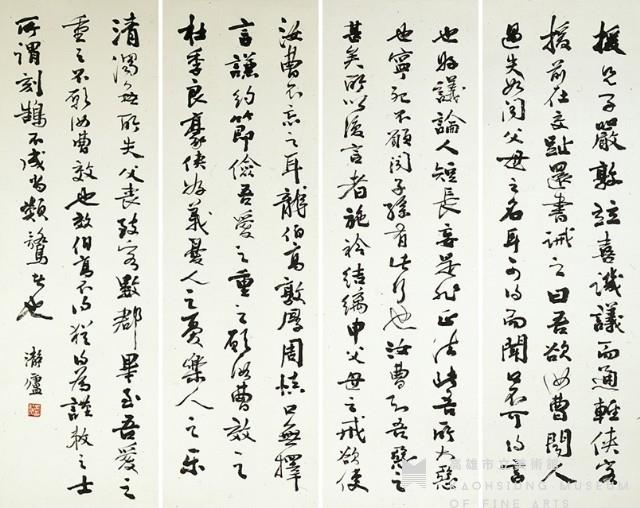 援兄子嚴敦並喜譏議而通輕俠客
援前在交趾還書誡之曰吾欲汝曹聞人
過失如聞父母之名耳可得而聞口不可得言
也好議論人短長妄是非正法此吾所大惡
也寧死不願聞子孫有此行也汝曹知吾惡之
甚矣所以復言者施衿結褵申父母之戒欲使
汝曹不忘之耳龍伯高敦厚周慎口無擇
言謙約節儉吾愛之重之願汝曹效之
杜季良豪俠好義憂人之憂樂人之樂
清濁無所失父喪致客數郡畢至吾愛之
重之不願汝曹效也效伯高不得猶為謹敕之士
所謂刻鵠不成尚類鶩者也
高雄市立美術館
KAOHSIUNG MUSEUM
OF FINE ARTS